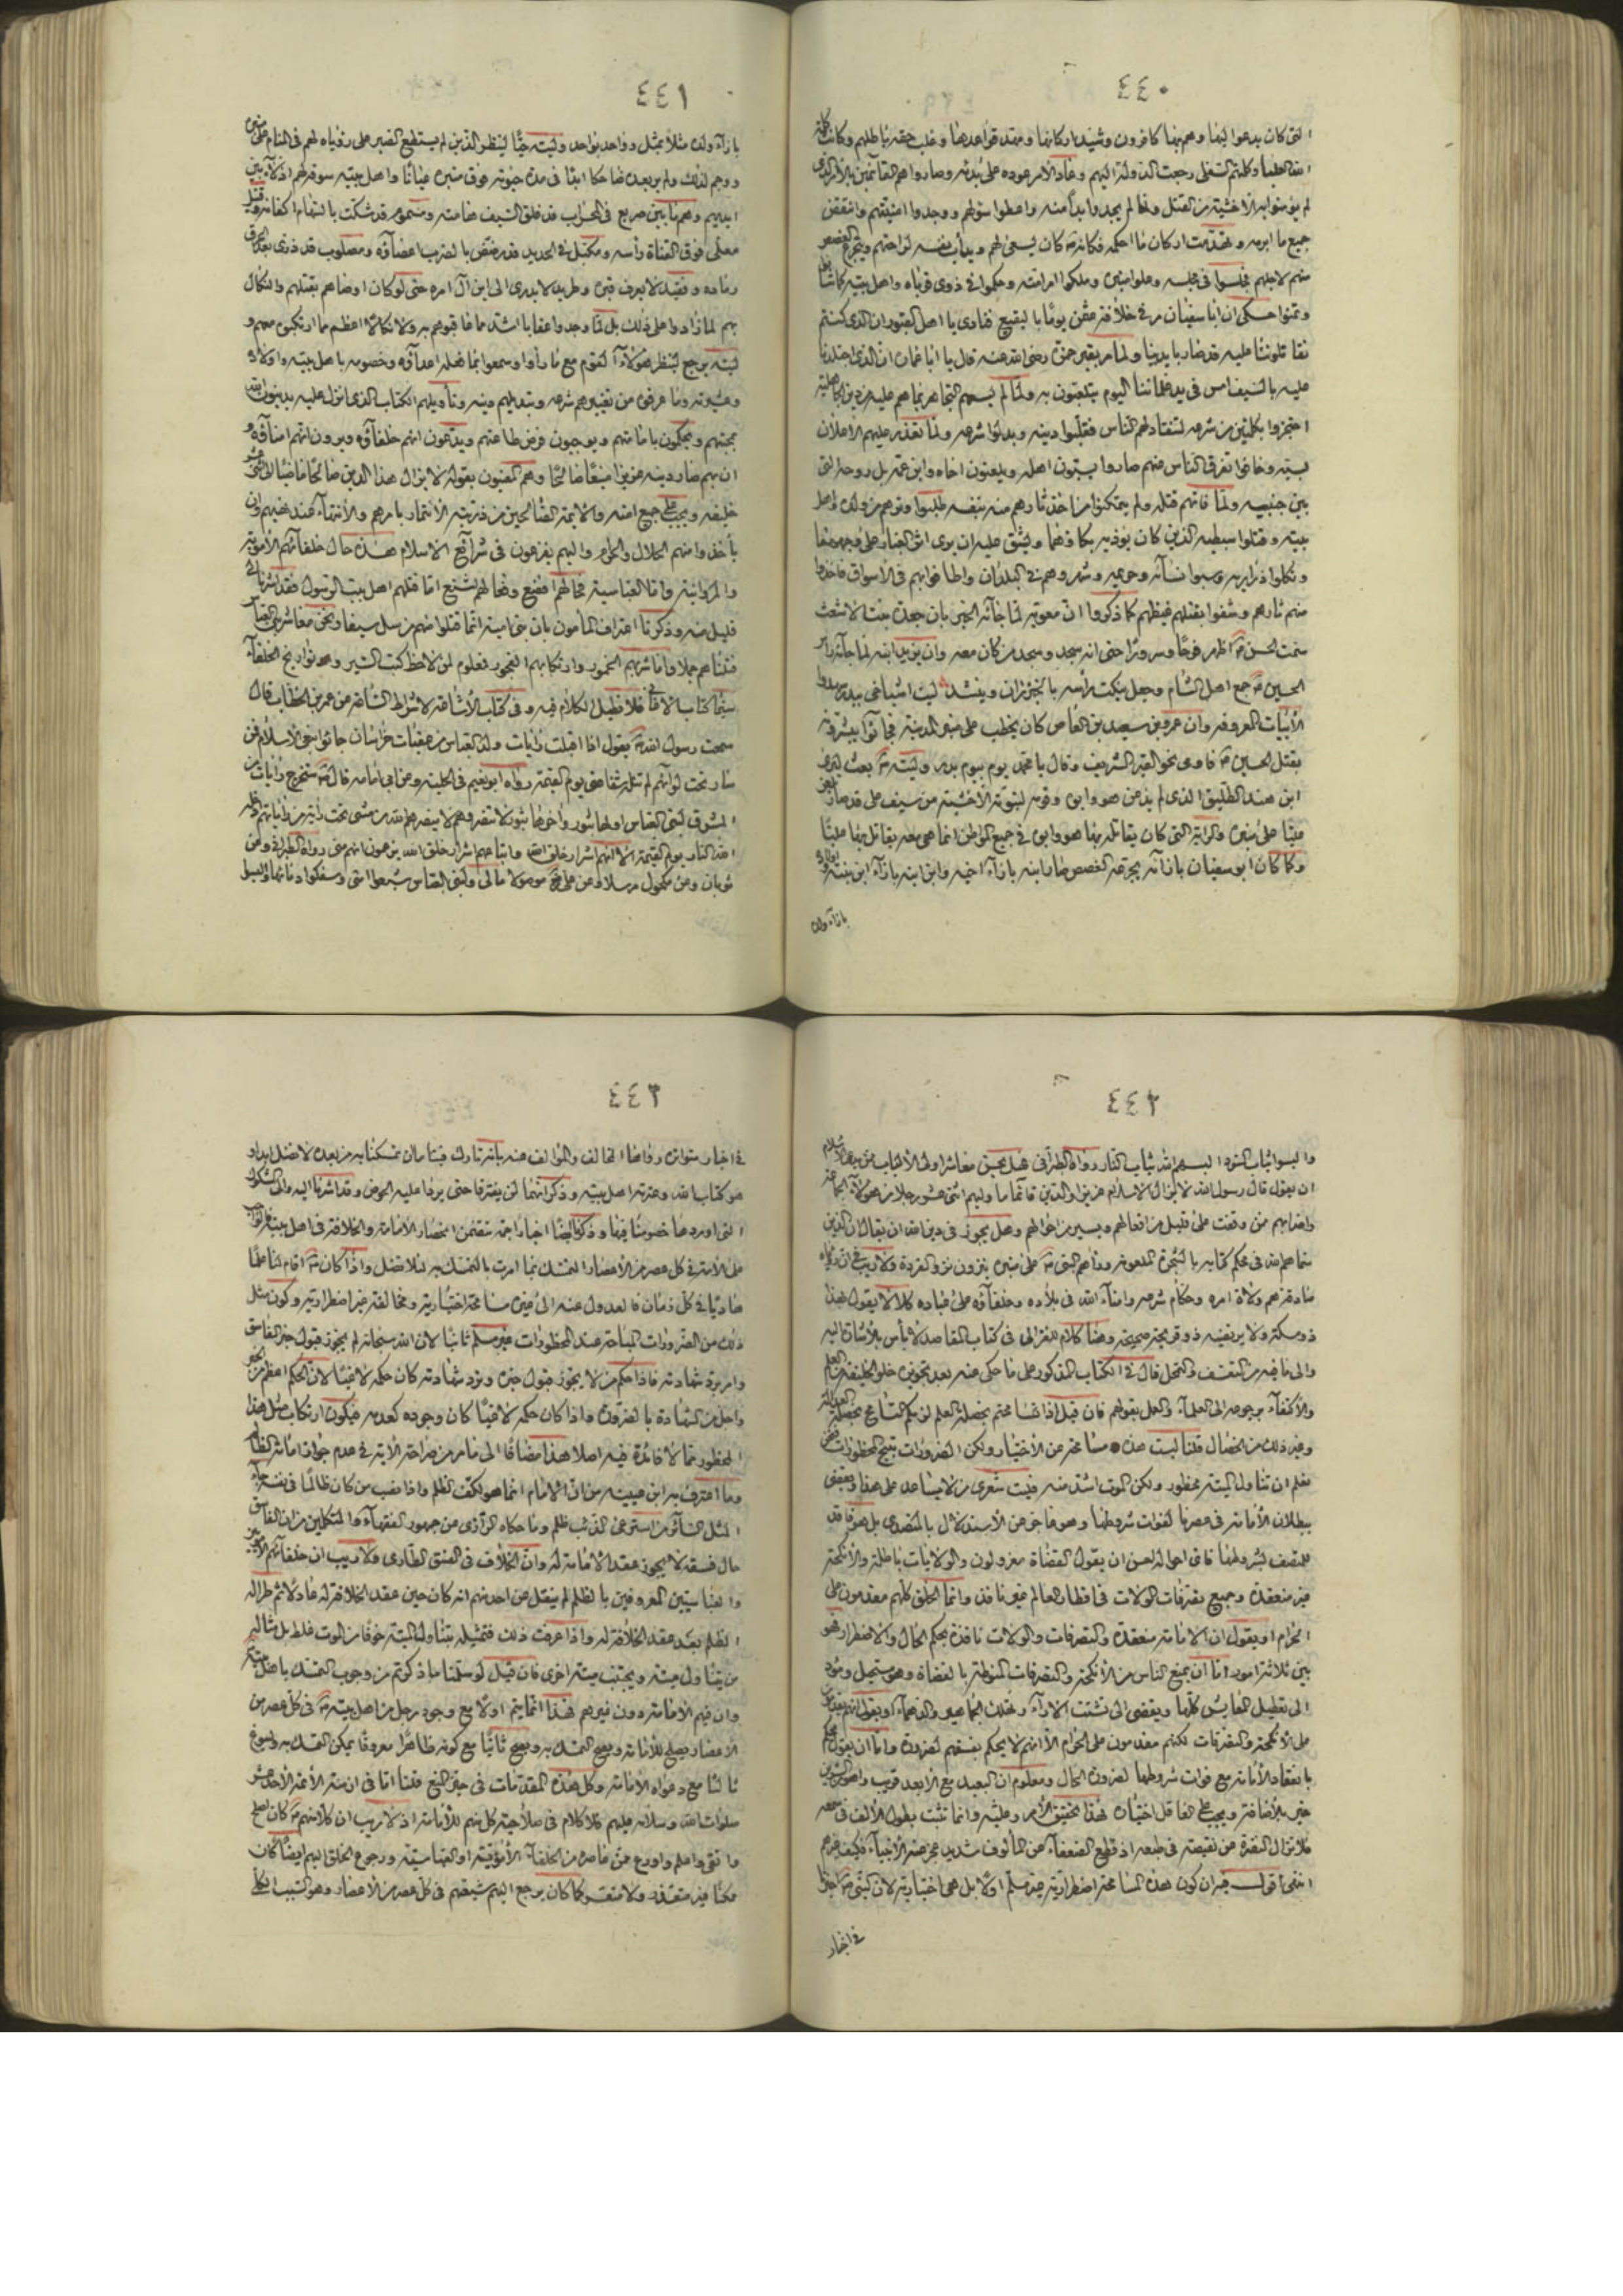 ٤٤٠
التى كان يدعوا اليها وهم بها كافرون وشيد اركانها ومهد قواعدها وغلب حقه باطلهم وكانت كلمة
الله العليا وكلمتهم السفلى رجعت الدولة اليهم وعاد الامر عوده على بدئه وصاروا هم القائمين بالامر الذى
لم يؤمنوا به الا خشية من القتل ولما لم يجدوا بدا منه واعطوا سؤلهم ووجدوا امنيتهم وانتقض
جميع ما ابرمه وتهدمت اركان ما احكمه فكانه كان ليسعى لهم ويدأب نفسه لراحتهم ويتجرع الغصص
منهم لاجلهم فجلسوا فى مجلسه وعلوا منبره وملكوا امر امته وحكموا فى ذوى قرباه واهل بيته كما شاؤا
وتمنوا حكى ان ابا سفيان مر فى خلافة عثمن يوما بالبقيع فنادى يا اهل القبور ان الذى كنتم
تقاتلوننا عليه قد صار بايدينا ولما مر بقبر حمزة رضى الله عنه قال يا ابا عمارة ان الذى اجتلدنا
عليه بالسيف امس فى يد غلماننا اليوم يتلعبون به ولما لم يسعهم التجاهر بما هم عليه من دين الجاهلية
اجتزوا بكلمتين من شرعه لتنقاد لهم الناس فقلبوا دينه وبدلوا شرعه ولما تعذر عليهم الاعلان
بسبه وخافوا تفرق الناس عنهم صاروا يسبون اهله ويلعنون اخاه وابن عمه بل روحه التى
بين جنبيه ولما فاتهم قتله ولم يتمكنوا من اخذ ثارهم منه بنفسه طلبوا وترهم من ولده واهل
بيته وقتلوا سبطيه الذين كان يؤذيه بكاؤهما ويشق عليه ان يرى اثر الغبار على وجههما
ونكلوا ذراريه وسبوا نسائه وحرمه وشهروهم فى البلدان واطافوا بهم فى الاسواق فاخذوا
منهم ثارهم وشفوا بقتلهم غيظهم كما ذكروا ان معوية لما جائه الخبر بان جعدة بنت الاشعث
سمت الحسن اظهر فرحا وسرورا حتى انه سجد وسجد من كان معه وان يزيد ابنه لما جائه راس
الحسين جمع اهل الشام وجعل ينكت راسه بالخيزران وينشد ليت اشياخى ببدر شهدوا
الابيات المعروفة وان عمرو بن سعيد بن العاص كان يخطب على منبر المدينة فجائوا يبشرونه
بقتل الحسين فاومى نحو القبر الشريف وقال يا محمد يوم بيوم بدر وليته بعث ليرى
ابن هند الطليق الذى لم يذعن هو وابوه وقومه لنبوته الا خشية من سيف على قد صار يلعن
عليا على منبره والراية التى كان يقاتله بها هو وابوه فى جميع المواطن انما هى معه يقاتل بها عليا
وكما كان ابو سفيان بازائه يجرعه الغصص صار ابنه بازاء اخيه وابن ابنه بازاء ابن بنته
بازاء ولده
٤٤١
بازاء ولده مثلا بمثل وواحد بواحد وليته حيا لينظر الذين لم يستطع الصبر على رؤياه لهم فى المنام على منبره
ووجم لذلك ولم ير بعدها ضاحكا ابدا فى مدة حيوته فوق منبره عيانا واهل بيته سوقة لهم اذلاء بين
ايديهم وهم ما بين صريع فى المحراب قد فلق السيف هامته ومسموم قد شكت بالسهام اكفانه وقتيل
معلى فوق القناة رأسه ومكبل فى الحديد قد رضض بالضرب اعضاؤه ومصلوب قد ذرى بعد الحرق
رماده وفقيد لا يعرف قبره وطريد لا يدرى الى اين آل امره حتى لو كان اوصاهم بقتلهم والنكال
بهم لما زادوا على ذلك بل لما وجدوا عقابا اشد مما عاقبوهم به ولا نكالا اعظم مما ارتكبوه معهم و
ليته يرجع لينظر هؤلاء القوم مع ما رأوا وسمعوا بما فعله اعدائه وخصومه باهل بيته واولاده
وعشيرته وما عرفوه من تغييرهم شرعه وتبديلهم دينه وتأويلهم الكتاب الذى انزل عليه يدينون الله
بمحبتهم ويحكمون بامامتهم ويوجبون فرض طاعتهم ويدعون انهم خلفاؤه ويرون انهم امناؤه و
ان بهم صار دينه عزيزا منيعا صالحا وهم المعنيون بقوله لا يزال هذا الدين صالحا ماضيا الى اثنى عشر
خليفه ويجب على جميع امته والائمة الصالحين من ذريته الائتمار بامرهم والانتهاء عند نهيهم وان
يأخذوا منهم الحلال والحرام واليهم يفزعون فى شرائع الاسلام هذه حال خلفائهم الاموية
والمروانية واما العباسية فحالهم افضع وفعالهم اشنع اما قتلهم اهل بيت الرسول فقد اشرنا الى
قليل منه وذكرنا اعتراف المأمون بان بنى امية انما قتلوا منهم من سل سيفا ونحن معاشر بنى العباس
قتلناهم جملا واما شربهم الخمور وارتكابهم الفجور فمعلوم لمن لاحظ كتب السير وهو تواريخ الخلفاء
سيما كتاب الاغانى فلا نطيل الكلام فيه وفى كتاب الاشاعة لاشراط الساعة عن عمر بن الخطاب قال
سمعت رسول الله يقول اذا اقبلت رايات ولد العباس من عقبات خراسان جائوا بنعى الاسلام فمن
سار تحت لوائهم لم تنله شفاعتى يوم القيمة رواه ابو نعيم فى الحلية وعن ابى امامة قال ستخرج رايات من
المشرق لبنى العباس اولها مثبور واخرها مثبور لا تنصروهم لا نصرهم الله من مشى تحت راية من راياتهم ادخله
الله النار يوم القيمة الا انهم شرار خلق الله واتباعهم شرار خلق الله يزعمون انهم منى رواه الطبرانى وعن
ثوبان وعن مكحول مرسلا وعن على موصولا مالى ولبنى العباس شيعوا امتى وسفكوا دمائها والبسوها
٤٤٢
والبسوا ثياب السواد البسهم الله ثياب النار رواه الطبرانى فهل يحسن معاشر اولى الالباب ممن يدعى الاسلام
ان يقول قال رسول الله لا يزال الاسلام عزيزا والدين قائما ما وليهم اثنى عشر رجلا من هؤلاء الجماعة
واضرابهم ممن وقفت على قليل من افعالهم ويسير من احوالهم وهل يجوز فى دين الله ان يقال ان الذين
سماهم الله فى محكم كتابه بالشجرة الملعونة ورءاهم النبى على منبره ينزون نزو القردة ولا ريب فى ان رؤياه
صادقة هم ولاة امره وحكام شرعه وامناء الله فى بلاده وخلفاؤه على عباده كلا لا يقول هذا
ذو مسكة ولا يرتضيه ذو قريحة صحيحة وهنا كلام للغزالى فى كتاب المقاصد لا بأس بالاشارة اليه
والى ما فيه من التعسف والتمحل قال فى الكتاب المذكور على ما حكى عنه بعد تجويزه خلو الخليفة من العلم
والاكتفاء برجوعه الى العلماء والعمل بقولهم فان قيل اذا تسامحتم بخصلة العلم لزمكم التسامح بخصلة العدالة
وغير ذلك من الخصال قلنا ليست هذه مسامحة عن الاختيار ولكن الضرورات تبيح المحظورات فنحن
نعلم ان تناول الميتة محظور ولكن الموت اشد منه فليت شعرى من لا يساعد على هذا ويقضى
ببطلان الامامة فى عصرنا لفوات شروطها وهو عاجز عن الاستبدال بالمتصدى بل هو فاقد
للمتصف بشروطها فاى احواله احسن ان يقول القضاة معزولون والولايات باطلة والانكحة
غير منعقدة وجميع تصرفات الولاة فى اقطار العالم غير نافذة وانما الخلق كلهم مقدمون على
الحرام او يقول ان الامامة منعقدة والتصرفات والولايات نافذة بحكم الحال والاضطرار فهو
بين ثلاثة امور اما ان يمنع الناس من الانكحة والتصرفات المنوطة بالقضاة وهو مستحيل ومؤد
الى تعطيل المعايش كلها ويفضى الى تشتت الاراء ويهلك الجماهير والدهماء او يقول انهم يقدمون
على الانكحة والتصرفات لكنهم مقدمون على الحرام الا انهم لا يحكم بفسقهم للضرورة واما ان يقول يحكم
بانعقاد الامامة مع فوات شروطها لضرورة الحال ومعلوم ان البعيد مع الابعد قريب واهون الشرين
خير بالاضافة ويجب على العاقل اختياره فهذا تحقيق الامر وانما تثبت بطول الالف فى
فلا تزال النفرة عن نقيضه فى طبعه اذ فطام الضعفاء عن المألوف شديد عجز عنه الانبياء فكيف غيرهم
انتهى اقول فيه ان كون هذه المسامحة اضطرارية غير مسلم اولا بل هى اختيارية لان النبى اخبر
فى اخبار
٤٤٣
فى اخبار متواترة رواها المخالف والمؤالف عنه بانه تارك فينا ما ان تمسكنا به من بعده لا نضل ابدا و
هو كتاب الله وعترته اهل بيته وذكر انهما لن يفترقا حتى يردا عليه الحوض وقد اشرنا اليه والى الشكوك
التى اوردها خصومنا فيها وذكرنا ايضا اخبارا جمة تتضمن انحصار الامامة والخلافة فى اهل بيته
على الامة فى كل عصر من الاعصار التمسك بما امرت بالتمسك به لئلا تضل واذا كان اقام لنا علما
هاديا فى كل زمان فالعدول عنه الى غيره مسامحة اختيارية ومخالفة غير اضطرارية وكون مثل
ذلك من الضرورات المباحة عند المحظورات غير مسلم ثانيا لان الله سبحانه لم يجوز قبول خبر الفاسق
وامر برد شهادته فاذا حكم من لا يجوز قبول خبره وترد شهادته كان حكمه لاغيا لان الحكم اعظم من الخبر
واجل من الشهادة بالضرورة واذا كان حكمه لاغيا كان وجوده كعدمه فيكون ارتكاب مثل هذا
المحظور مما لا فائدة فيه اصلا هذا مضافا الى ما مر من صراحة الاية فى عدم جواز امامة الظالم
وما اعترف به ابن عيينة من ان الامام انما هو لكف الظلم واذا نصب من كان ظالما فى نفسه جاء
المثل السائر من استرعى الذئب ظلم وما حكاه الرازى من جمهور الفقهاء والمتكلمين من ان الفاسق
حال فسقه لا يجوز عقد الامامة له وان الخلاف فى الفسق الطارى ولا ريب ان خلفائهم الاموية
والعباسيين المعروفين بالظلم لم ينقل عن احد منهم انه كان حين عقد الخلافة له عادلا ثم طرأ له
الظلم بعد عقد الخلافة له واذا عرفت ذلك فتمثيله بتناول الميتة خوفا من الموت غلط بل مثاله
من يتناول ميتة ويجتنب ميتة اخرى فان قيل لو سلمنا ما ذكرتم من وجوب التمسك باهل بيته
وان فيهم الامامة دون غيرهم فهذا انما يتم اولا مع وجود رجل من اهل بيته فى كل عصر من
الاعصار يصلح للامامة ويصح التمسك به ويصح ثانيا مع كونه ظاهرا معروفا يمكن التمسك به ويسوغ
ثالثا مع دعواه الامامة وكل هذه المقدمات فى حيز المنع قلنا اما فى ازمنة الائمة الاحد عشر
صلوات الله وسلامه عليهم فلا كلام فى صلاحية كل منهم للامامة اذ لا ريب ان كلا منهم كان اصلح
واتقى واعلم واورع ممن عاصره من الخلفاء الاموية او العباسية ورجوع الخلق اليهم ايضا كان
ممكنا غير متعذر ولا متعسر كما كان يرجع اليهم شيعتهم فى كل عصر من الاعصار وهو السبب الكلى